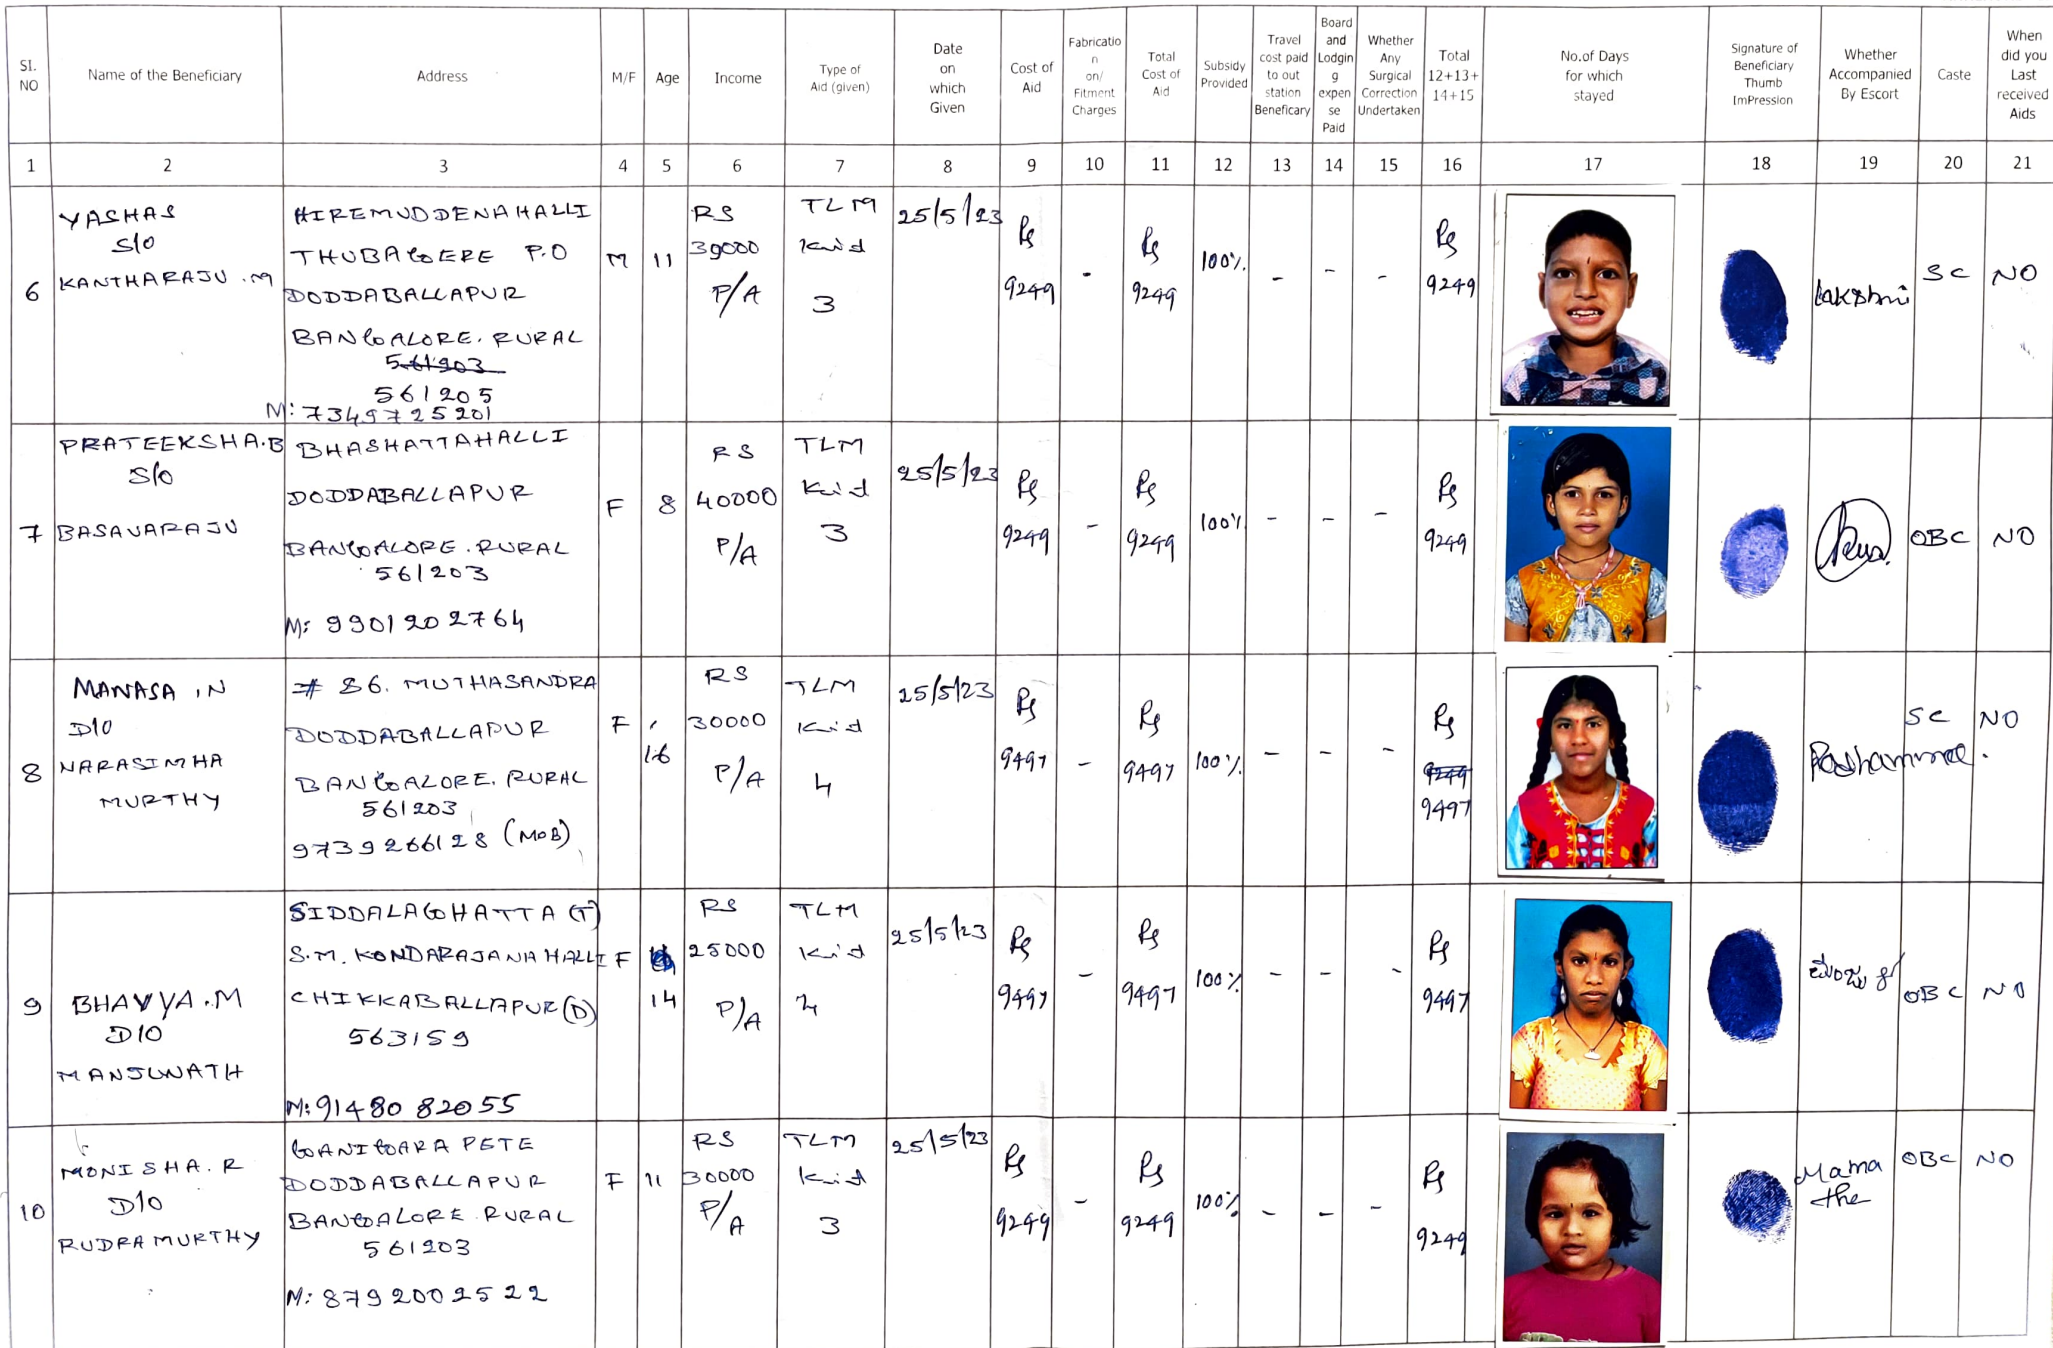 SI. NO
Name of the Beneficiary
Address
M/F
Age
Income
Type of
Aid (given)
Date
on
which
Given
Cost of
Aid
Fabricatio
n
on/
Fitment
Charges
Total
Cost of
Aid
Subsidy
Provided
Travel
cost paid
to out
station
Beneficary
Board
and
Lodgin
g
expen
se
Paid
Whether
Any
Surgical
Correction
Undertaken
Total
12+13+
14+15
No.of Days
for which
stayed
Signature of
Beneficiary
Thumb
ImPression
Whether
Accompanied
By Escort
Caste
When
did you
Last
received
Aids
1 2 3 4 5 6 7 8 9 10 11 12 13 14 15 16 17 18 19 20 21
6
YASHAS
S/o
KANTHARAJU .M
HIREMUDDENAHALLI
THUBAGERE P.O
DODDABALLAPUR
BANGALORE. RURAL
561203
561205
M: 7349725201
M
11
RS
30000
P/A
TLM
Kid
3
25/5/23
Rs
9249
-
Rs
9249
100%
-
-
-
Rs
9249
Lakshmi
SC
NO
7
PRATEEKSHA.B
S/o
BASAVARAJU
BHASHATTAHALLI
DODDABALLAPUR
BANGALORE. RURAL
561203
M: 9901202764
F
8
RS
40000
P/A
TLM
Kid
3
25/5/23
Rs
9249
-
Rs
9249
100%
-
-
-
Rs
9249
OBC
NO
8
MANASA .N
D/o
NARASIMHA
MURTHY
# 86. MUTHASANDRA
DODDABALLAPUR
BANGALORE. RURAL
561203
9739266128 (MOB)
F
16
RS
30000
P/A
TLM
Kid
4
25/5/23
Rs
9497
-
Rs
9497
100%
-
-
-
Rs
9249
9497
SC
NO
9
BHAVYA.M
D/o
MANJUNATH
SIDDALAGHATTA (T)
S.M. KONDARAJANAHALLI
CHIKKABALLAPUR (D)
563159
M: 91480 82055
F
14
RS
25000
P/A
TLM
Kid
4
25/5/23
Rs
9497
-
Rs
9497
100%
-
-
-
Rs
9497
OBC
NO
10
MONISHA. R
D/o
RUDRAMURTHY
GANIGARA PETE
DODDABALLAPUR
BANGALORE RURAL
561203
M: 8792002522
F
11
RS
30000
P/A
TLM
Kid
3
25/5/23
Rs
9249
-
Rs
9249
100%
-
-
-
Rs
9249
Mama
the
OBC
NO